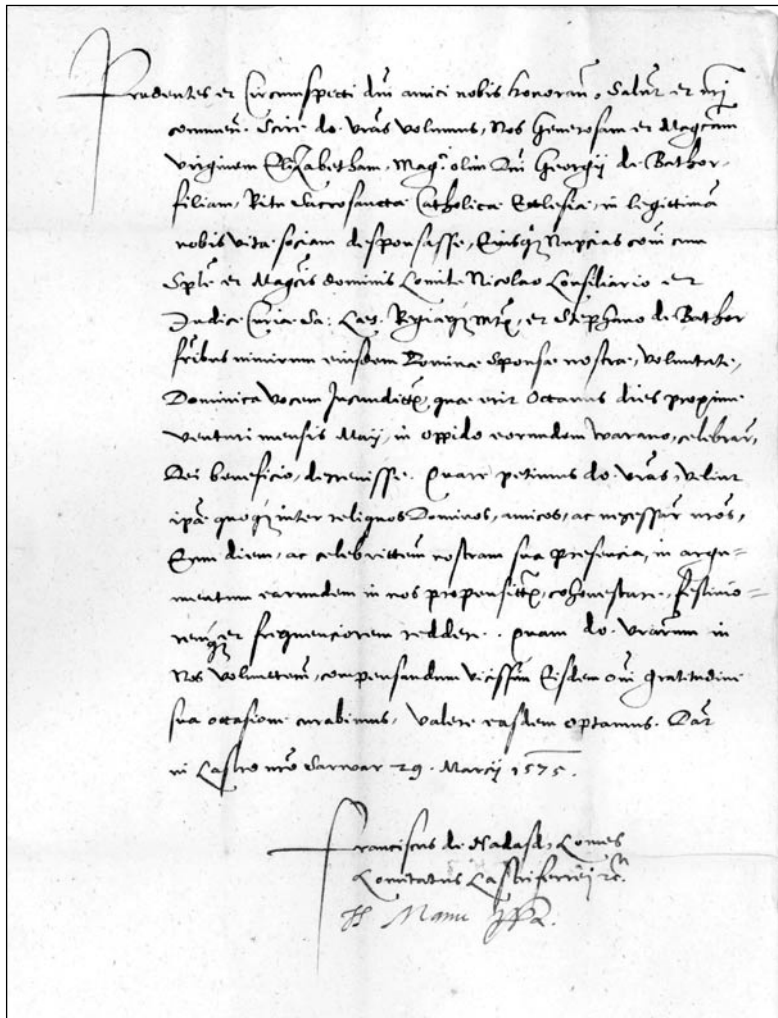 Prudentes et Circumspecti dni amici nobis honoran. Salut et nri
commen. Scire do. vras volumus, Nos Generosam et Magcam
virginem Elizabetham, Mag. olim Dni Georgij de Bathor
filiam, Ritu Sacrosanctæ Catholicæ Ecclesiæ, in legittimã
nobis vitæ sociam desponsasse, Eiusq Nupcias cum
Spli et Magcis dominis Comite Nicolao Consiliario et
Judice Curiæ Sa: Caes. Regiæq Mtis, et Stephano de Bathor
fribus nimirum eiusdem Dominæ Sponsæ nostræ, voluntate,
Dominica vocem Jucunditatis, quæ erit Octauus dies proxime
venturi mensis Maij, in oppido eorundem Warano, celebrar,
Dei beneficio, decreuisse. Quare petimus do. vras, velint
ipæ quoq inter reliquos Dominos, amicos, ac necessar nros,
Eum diem, ac celebrittem nostram sua presencia, in argu=
mentum earundem in nos propensittis, cohonestare, festiuio=
remq et frequenciorem reddere. Quam do. vrarum in
Nos voluntatem, compensandum vicissim Eisdem oni gratitudine
sua occasione curabimus, Valere easdem optamus. Dat
in Castro nro Sarwar 29. Marcij 1575.
Franciscus de Nadasd, Comes
Comitatus Castriferrei etc.
Manu